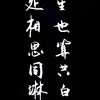 处相思同淋
生也算共白